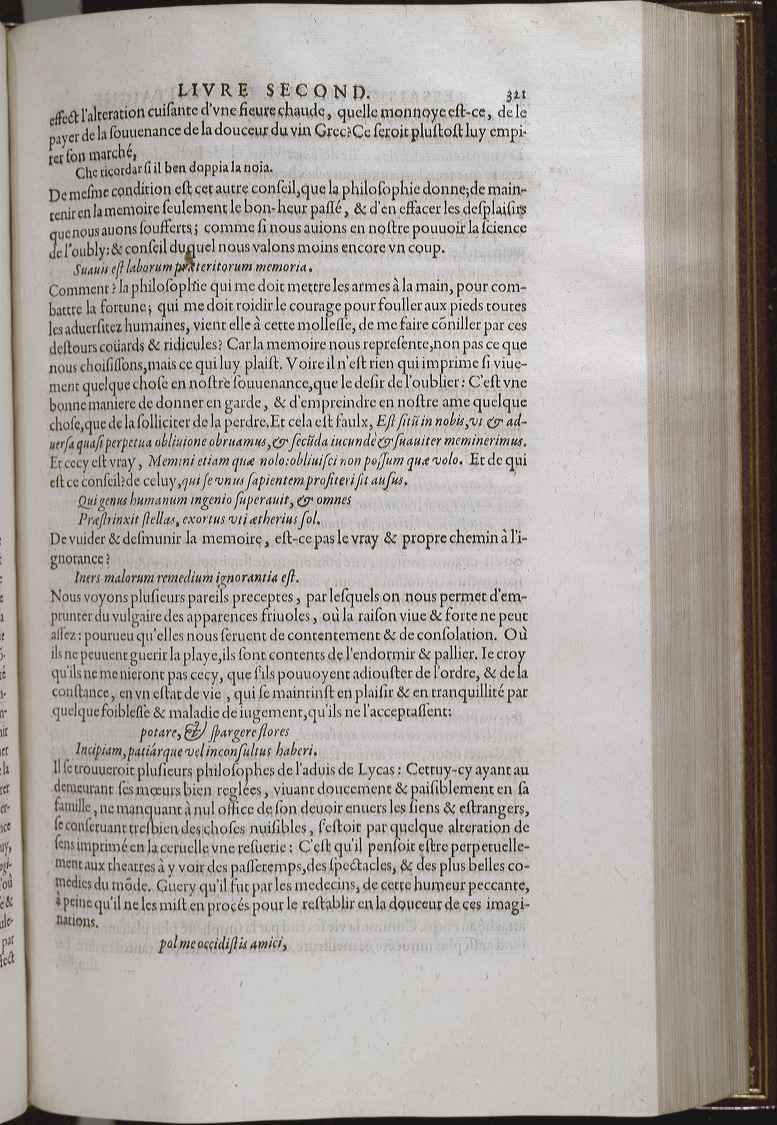 LIVRE SECOND. 321
effect l'alteration cuiſante d'vne fieure chaude, quelle monnoye eſt-ce, de le
payer de la ſouuenance de la douceur du vin Grec? Ce ſeroit pluſtoſt luy empi-
rer ſon marché,
Che ricordarſi il ben doppia la noia.
De meſme condition eſt cet autre conſeil, que la philoſophie donne; de main-
tenir en la memoire ſeulement le bon-heur paſſé, & d'en effacer les deſplaiſirs
que nous auons ſoufferts; comme ſi nous auions en noſtre pouuoir la ſcience
de l'oubly: & conſeil duquel nous valons moins encore vn coup.
Suauis eſt laborum præteritorum memoria.
Comment? la philoſophie qui me doit mettre les armes à la main, pour com-
battre la fortune; qui me doit roidir le courage pour fouller aux pieds toutes
les aduerſitez humaines, vient elle à cette molleſſe, de me faire cõniller par ces
deſtours coüards & ridicules? Car la memoire nous repreſente, non pas ce que
nous choiſiſſons, mais ce qui luy plaiſt. Voire il n'eſt rien qui imprime ſi viue-
ment quelque choſe en noſtre ſouuenance, que le deſir de l'oublier: C'eſt vne
bonne maniere de donner en garde, & d'empreindre en noſtre ame quelque
choſe, que de la ſolliciter de la perdre. Et cela eſt faulx, Eſt ſitũ in nobis, vt & ad-
uerſa quaſi perpetua obliuione obruamus, & ſecũda iucundè & ſuauiter meminerimus.
Et cecy eſt vray, Memini etiam quæ nolo: obliuiſci non poſſum quæ volo. Et de qui
eſt ce conſeil? de celuy, qui ſe vnus ſapientem profiteri ſit auſus.
Qui genus humanum ingenio ſuperauit, & omnes
Præſtrinxit ſtellas, exortus vti ætherius ſol.
De vuider & deſmunir la memoire, eſt-ce pas le vray & propre chemin à l'i-
gnorance?
Iners malorum remedium ignorantia eſt.
Nous voyons pluſieurs pareils preceptes, par leſquels on nous permet d'em-
prunter du vulgaire des apparences friuoles, où la raiſon viue & forte ne peut
aſſez: pourueu qu'elles nous ſeruent de contentement & de conſolation. Où
ils ne peuuent guerir la playe, ils ſont contents de l'endormir & pallier. Ie croy
qu'ils ne me nieront pas cecy, que s'ils pouuoyent adiouſter de l'ordre, & de la
conſtance, en vn eſtat de vie, qui ſe maintinſt en plaiſir & en tranquillité par
quelque foibleſſe & maladie de iugement, qu'ils ne l'acceptaſſent:
potare, & ſpargere flores
Incipiam, patiárque vel inconſultus haberi.
Il ſe trouueroit pluſieurs philoſophes de l'aduis de Lycas: Cettuy-cy ayant au
demeurant ſes mœurs bien reglées, viuant doucement & paiſiblement en ſa
famille, ne manquant à nul office de ſon deuoir enuers les ſiens & eſtrangers,
ſe conſeruant treſbien des choſes nuiſibles, s'eſtoit par quelque alteration de
ſens imprimé en la ceruelle vne reſuerie: C'eſt qu'il penſoit eſtre perpetuelle-
ment aux theatres à y voir des paſſetemps, des ſpectacles, & des plus belles co-
medies du mõde. Guery qu'il fut par les medecins, de cette humeur peccante,
à peine qu'il ne les miſt en procés pour le reſtablir en la douceur de ces imagi-
nations.
pol me occidiſtis amici,